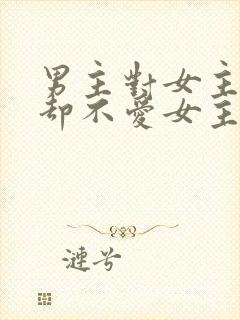 男主對女主
却不愛女主
漣兮